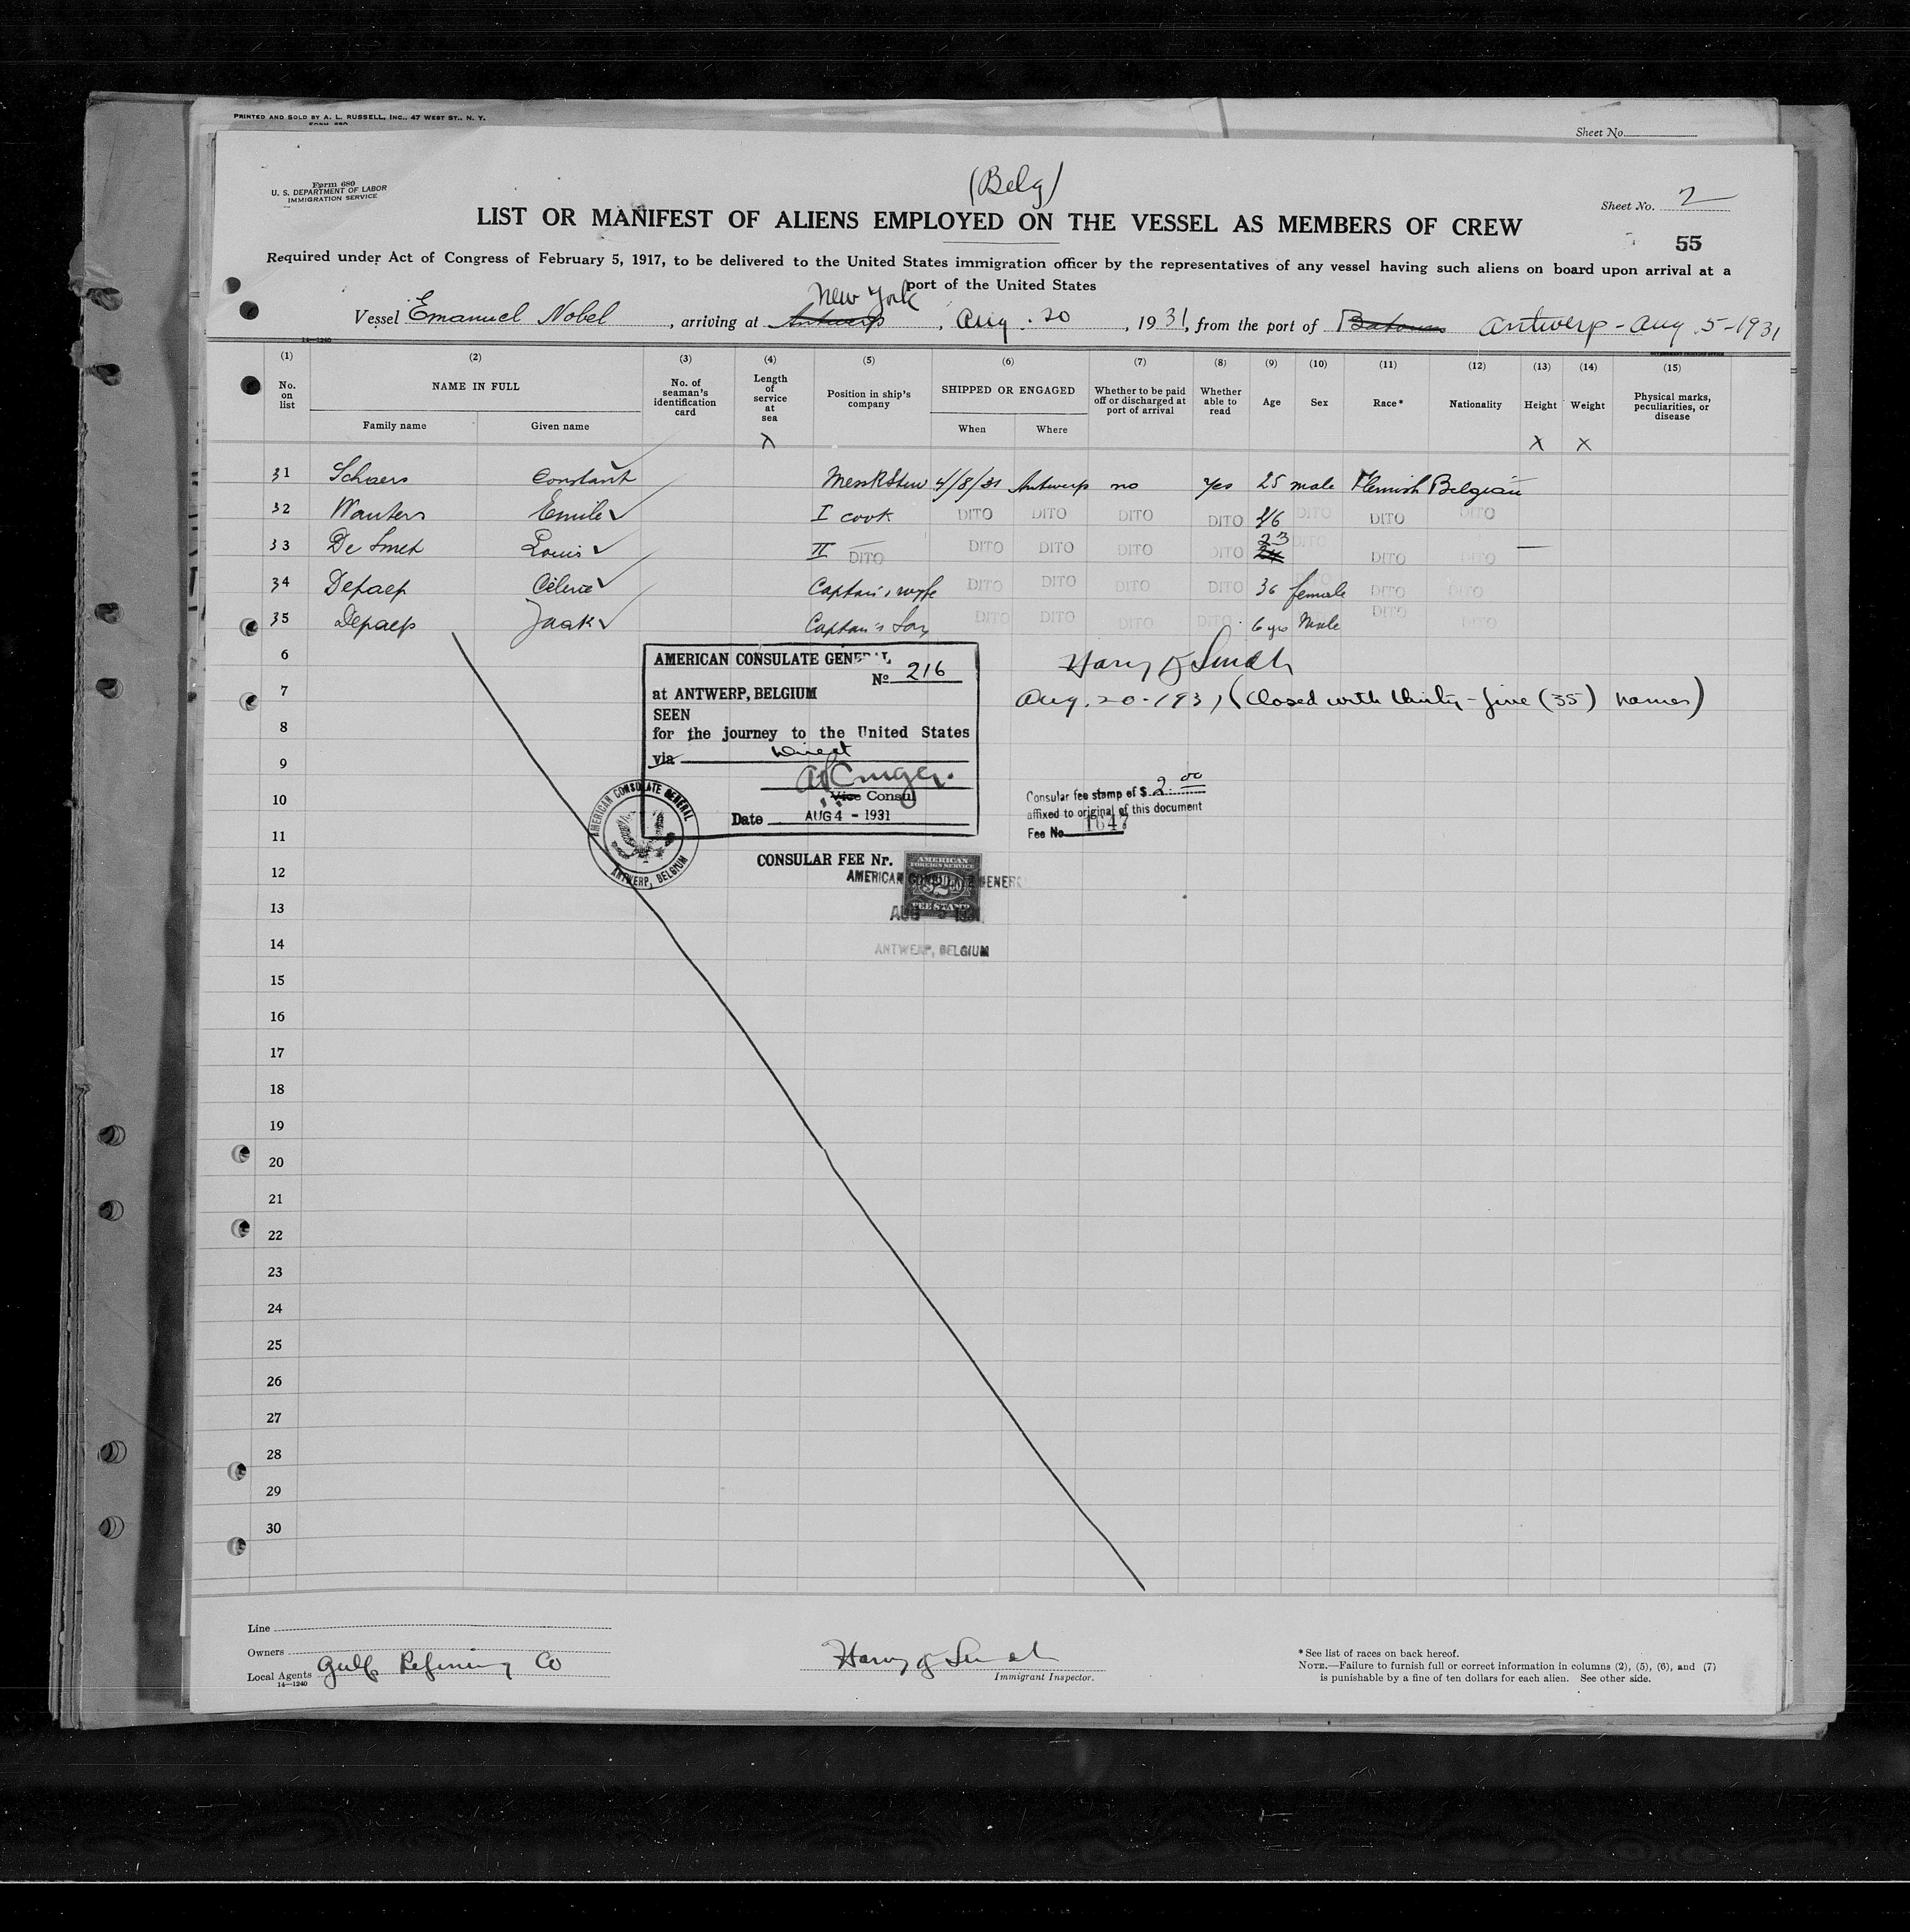 PRINTED AND SOLD BY A. L. RUSSELL, INC., 47 WEST ST., N. Y.
Sheet No.
Form 680
U. S. DEPARTMENT OF LABOR
IMMIGRATION SERVICE
(Belg)
Sheet No. 2
LIST OR MANIFEST OF ALIENS EMPLOYED ON THE VESSEL AS MEMBERS OF CREW
55
Required under Act of Congress of February 5, 1917, to be delivered to the United States immigration officer by the representatives of any vessel having such aliens on board upon arrival at a
port of the United States
New York
Vessel Emanuel Nobel, arriving at Antwerp, Aug. 20, 1931, from the port of Batoum Antwerp - Aug. 5 - 1931
14—1240
(1) (2) (3) (4) (5) (6) (7) (8) (9) (10) (11) (12) (13) (14) (15)
No. on list NAME IN FULL Family name Given name No. of seaman's identification card Length of service at sea Position in ship's company SHIPPED OR ENGAGED When Where Whether to be paid off or discharged at port of arrival Whether able to read Age Sex Race* Nationality Height Weight Physical marks, peculiarities, or disease
x x x
31 Schaers Constant 4/8/31 Antwerp no Yes 25 male Flemish Belgian
32 Wauters Emile I cook DITO DITO DITO DITO 46 DITO DITO DITO
33 De Smet Louis II DITO DITO DITO DITO DITO 23 DITO DITO DITO —
34 Depaep Captain's wyfe DITO DITO DITO DITO 36 female DITO DITO
35 Depaep Jaak Captain's Son DITO DITO DITO DITO 6 yrs Male DITO DITO
6
7
8
9
10
11
12
13
14
15
16
17
18
19
20
21
22
23
24
25
26
27
28
29
30
AMERICAN CONSULATE GENERAL
No 216
at ANTWERP, BELGIUM
SEEN
for the journey to the United States
via direct
Vice Consul
Date AUG 4 - 1931
AMERICAN CONSULATE GENERAL
ANTWERP, BELGIUM
Aug. 20 - 1931 (Closed with thirty-five (35) names)
Consular fee stamp of $ 2.00
affixed to original of this document
Fee No. 1647
CONSULAR FEE Nr.
AMERICAN FOREIGN SERVICE
$2.00
FEE STAMP
AMERICAN CONSULATE GENERAL
AUG 1931
ANTWERP, BELGIUM
Line
Owners
Local Agents Gulf Refining Co
14—1240
Immigrant Inspector.
* See list of races on back hereof.
NOTE.—Failure to furnish full or correct information in columns (2), (5), (6), and (7)
is punishable by a fine of ten dollars for each alien. See other side.